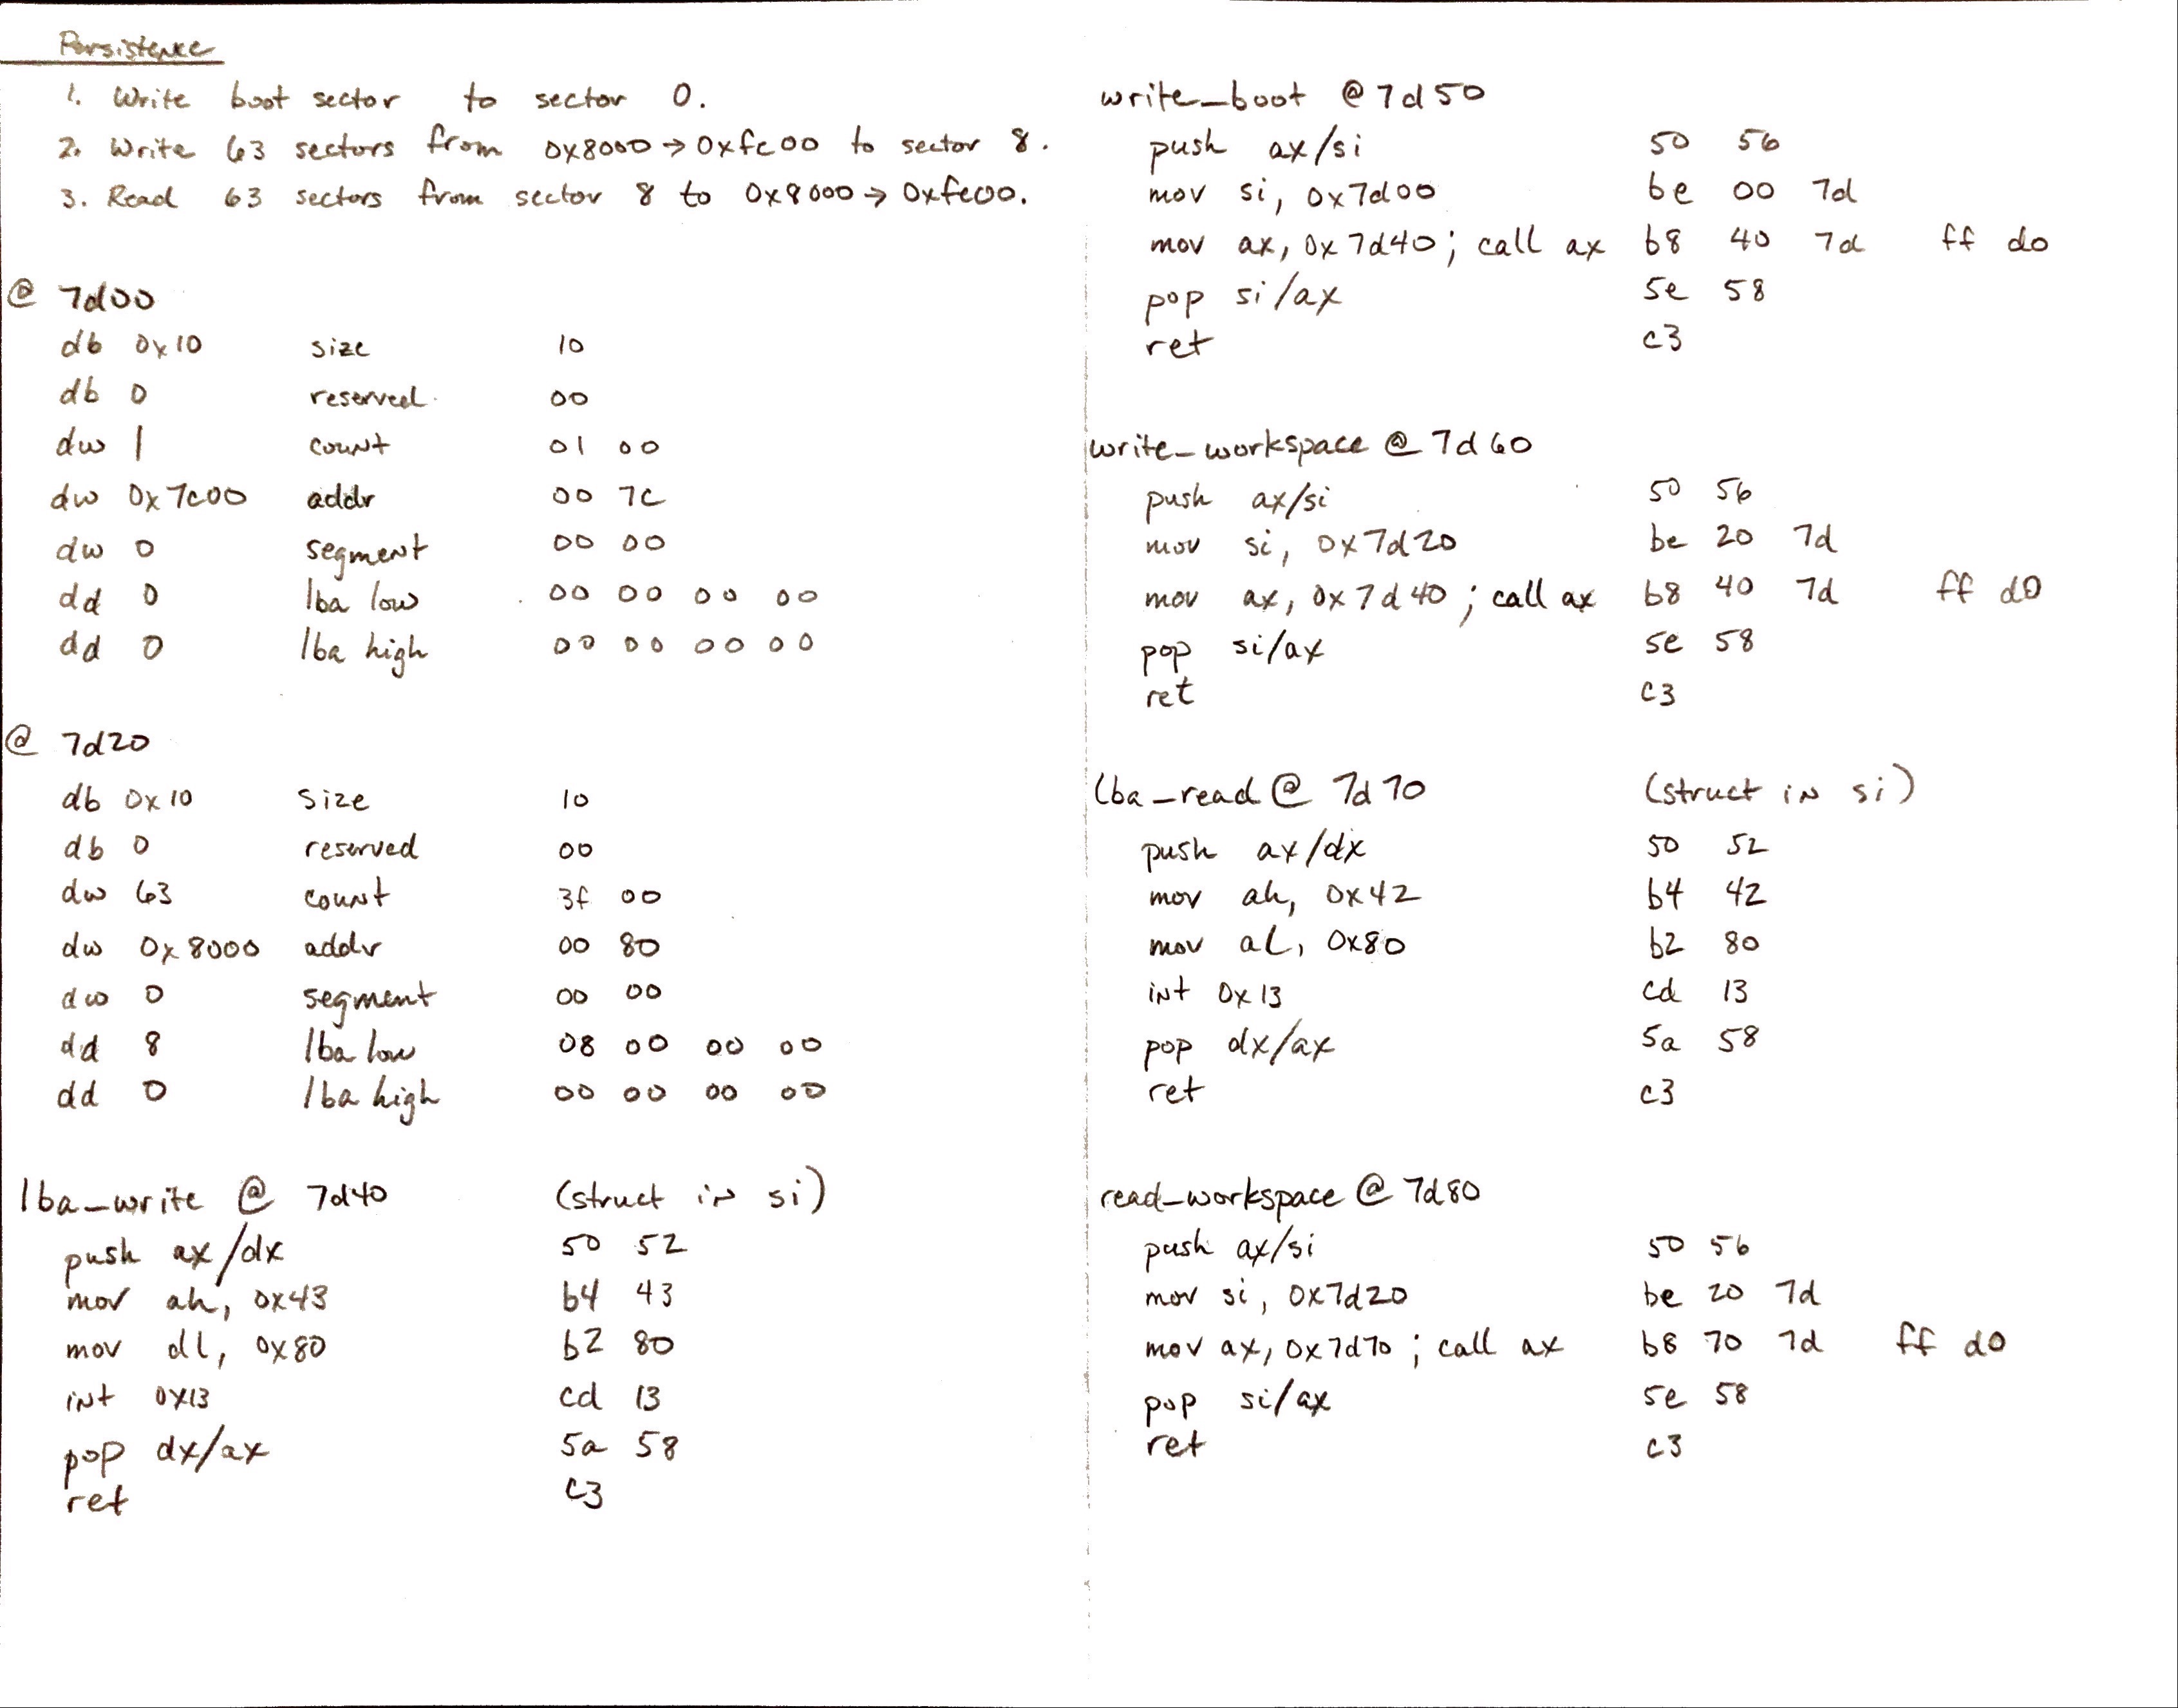 Persistence
1. Write boot sector to sector 0.
2. Write 63 sectors from 0x8000→0xfc00 to sector 8.
3. Read 63 sectors from sector 8 to 0x8000→0xfe00.
@ 7d00
db 0x10 size 10
db 0 reserved 00
dw 1 count 01 00
dw 0x7c00 addr 00 7c
dw 0 segment 00 00
dd 0 lba low 00 00 00 00
dd 0 lba high 00 00 00 00
@ 7d20
db 0x10 size 10
db 0 reserved 00
dw 63 count 3f 00
dw 0x8000 addr 00 80
dw 0 segment 00 00
dd 8 lba low 08 00 00 00
dd 0 lba high 00 00 00 00
lba_write @ 7d40 (struct in si)
push ax/dx 50 52
mov ah, 0x43 b4 43
mov dl, 0x80 b2 80
int 0x13 cd 13
pop dx/ax 5a 58
ret c3
write_boot @ 7d50
push ax/si 50 56
mov si, 0x7d00 be 00 7d
mov ax, 0x7d40; call ax b8 40 7d ff d0
pop si/ax 5e 58
ret c3
write_workspace @ 7d60
push ax/si 50 56
mov si, 0x7d20 be 20 7d
mov ax, 0x7d40; call ax b8 40 7d ff d0
pop si/ax 5e 58
ret c3
lba_read @ 7d70 (struct in si)
push ax/dx 50 52
mov ah, 0x42 b4 42
mov al, 0x80 b2 80
int 0x13 cd 13
pop dx/ax 5a 58
ret c3
read_workspace @ 7d80
push ax/si 50 56
mov si, 0x7d20 be 20 7d
mov ax, 0x7d70; call ax b8 70 7d ff d0
pop si/ax 5e 58
ret c3